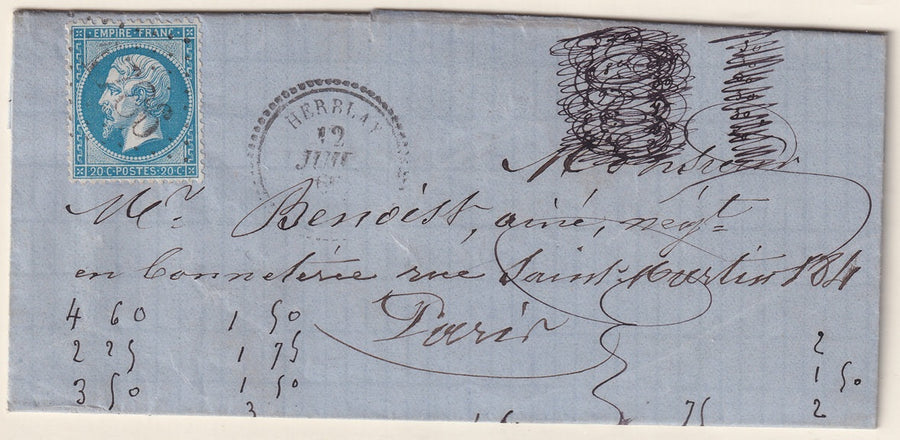 EMPIRE FRANC
20 C · POSTES · 20 C
HERBLAY
12
JUIN
Monsieur
Mr. Benoist, ainé, négt.
en Bonneterie rue Saint-Martin 184
Paris
4 60 1 50
2 25 1 75 2
3 50 1 50 1 50
3 75 2